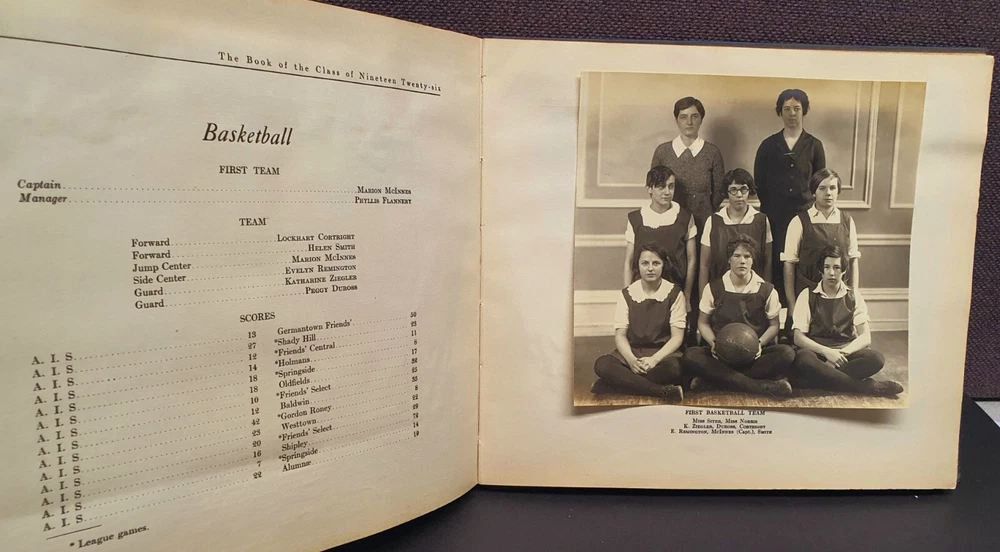 The Book of the Class of Nineteen Twenty-six
Basketball
FIRST TEAM
Captain MARION MCINNES
Manager PHYLLIS FLANNERY
TEAM
Forward LOCKHART CORTRIGHT
Forward HELEN SMITH
Jump Center MARION MCINNES
Side Center EVELYN REMINGTON
Guard KATHARINE ZIEGLER
Guard PEGGY DUROSS
SCORES
A. I. S. 13 Germantown Friends' 50
A. I. S. 27 *Shady Hill 23
A. I. S. 12 *Friends' Central 11
A. I. S. 14 *Holmans
A. I. S. 18 *Springside 17
A. I. S. 18 Oldfields
A. I. S. 10 *Friends' Select
A. I. S. 12 Baldwin
A. I. S. 42 *Gordon Roney
A. I. S. 23 Westtown
A. I. S. 20 *Friends' Select
A. I. S. 16 Shipley
A. I. S. 7 *Springside 14
A. I. S. 22 Alumnae 19
* League games.
FIRST BASKETBALL TEAM
MISS MISS NORRIS
K. ZIEGLER, DUROSS, CORTRIGHT
E. REMINGTON, MCINNES (Capt.), SMITH